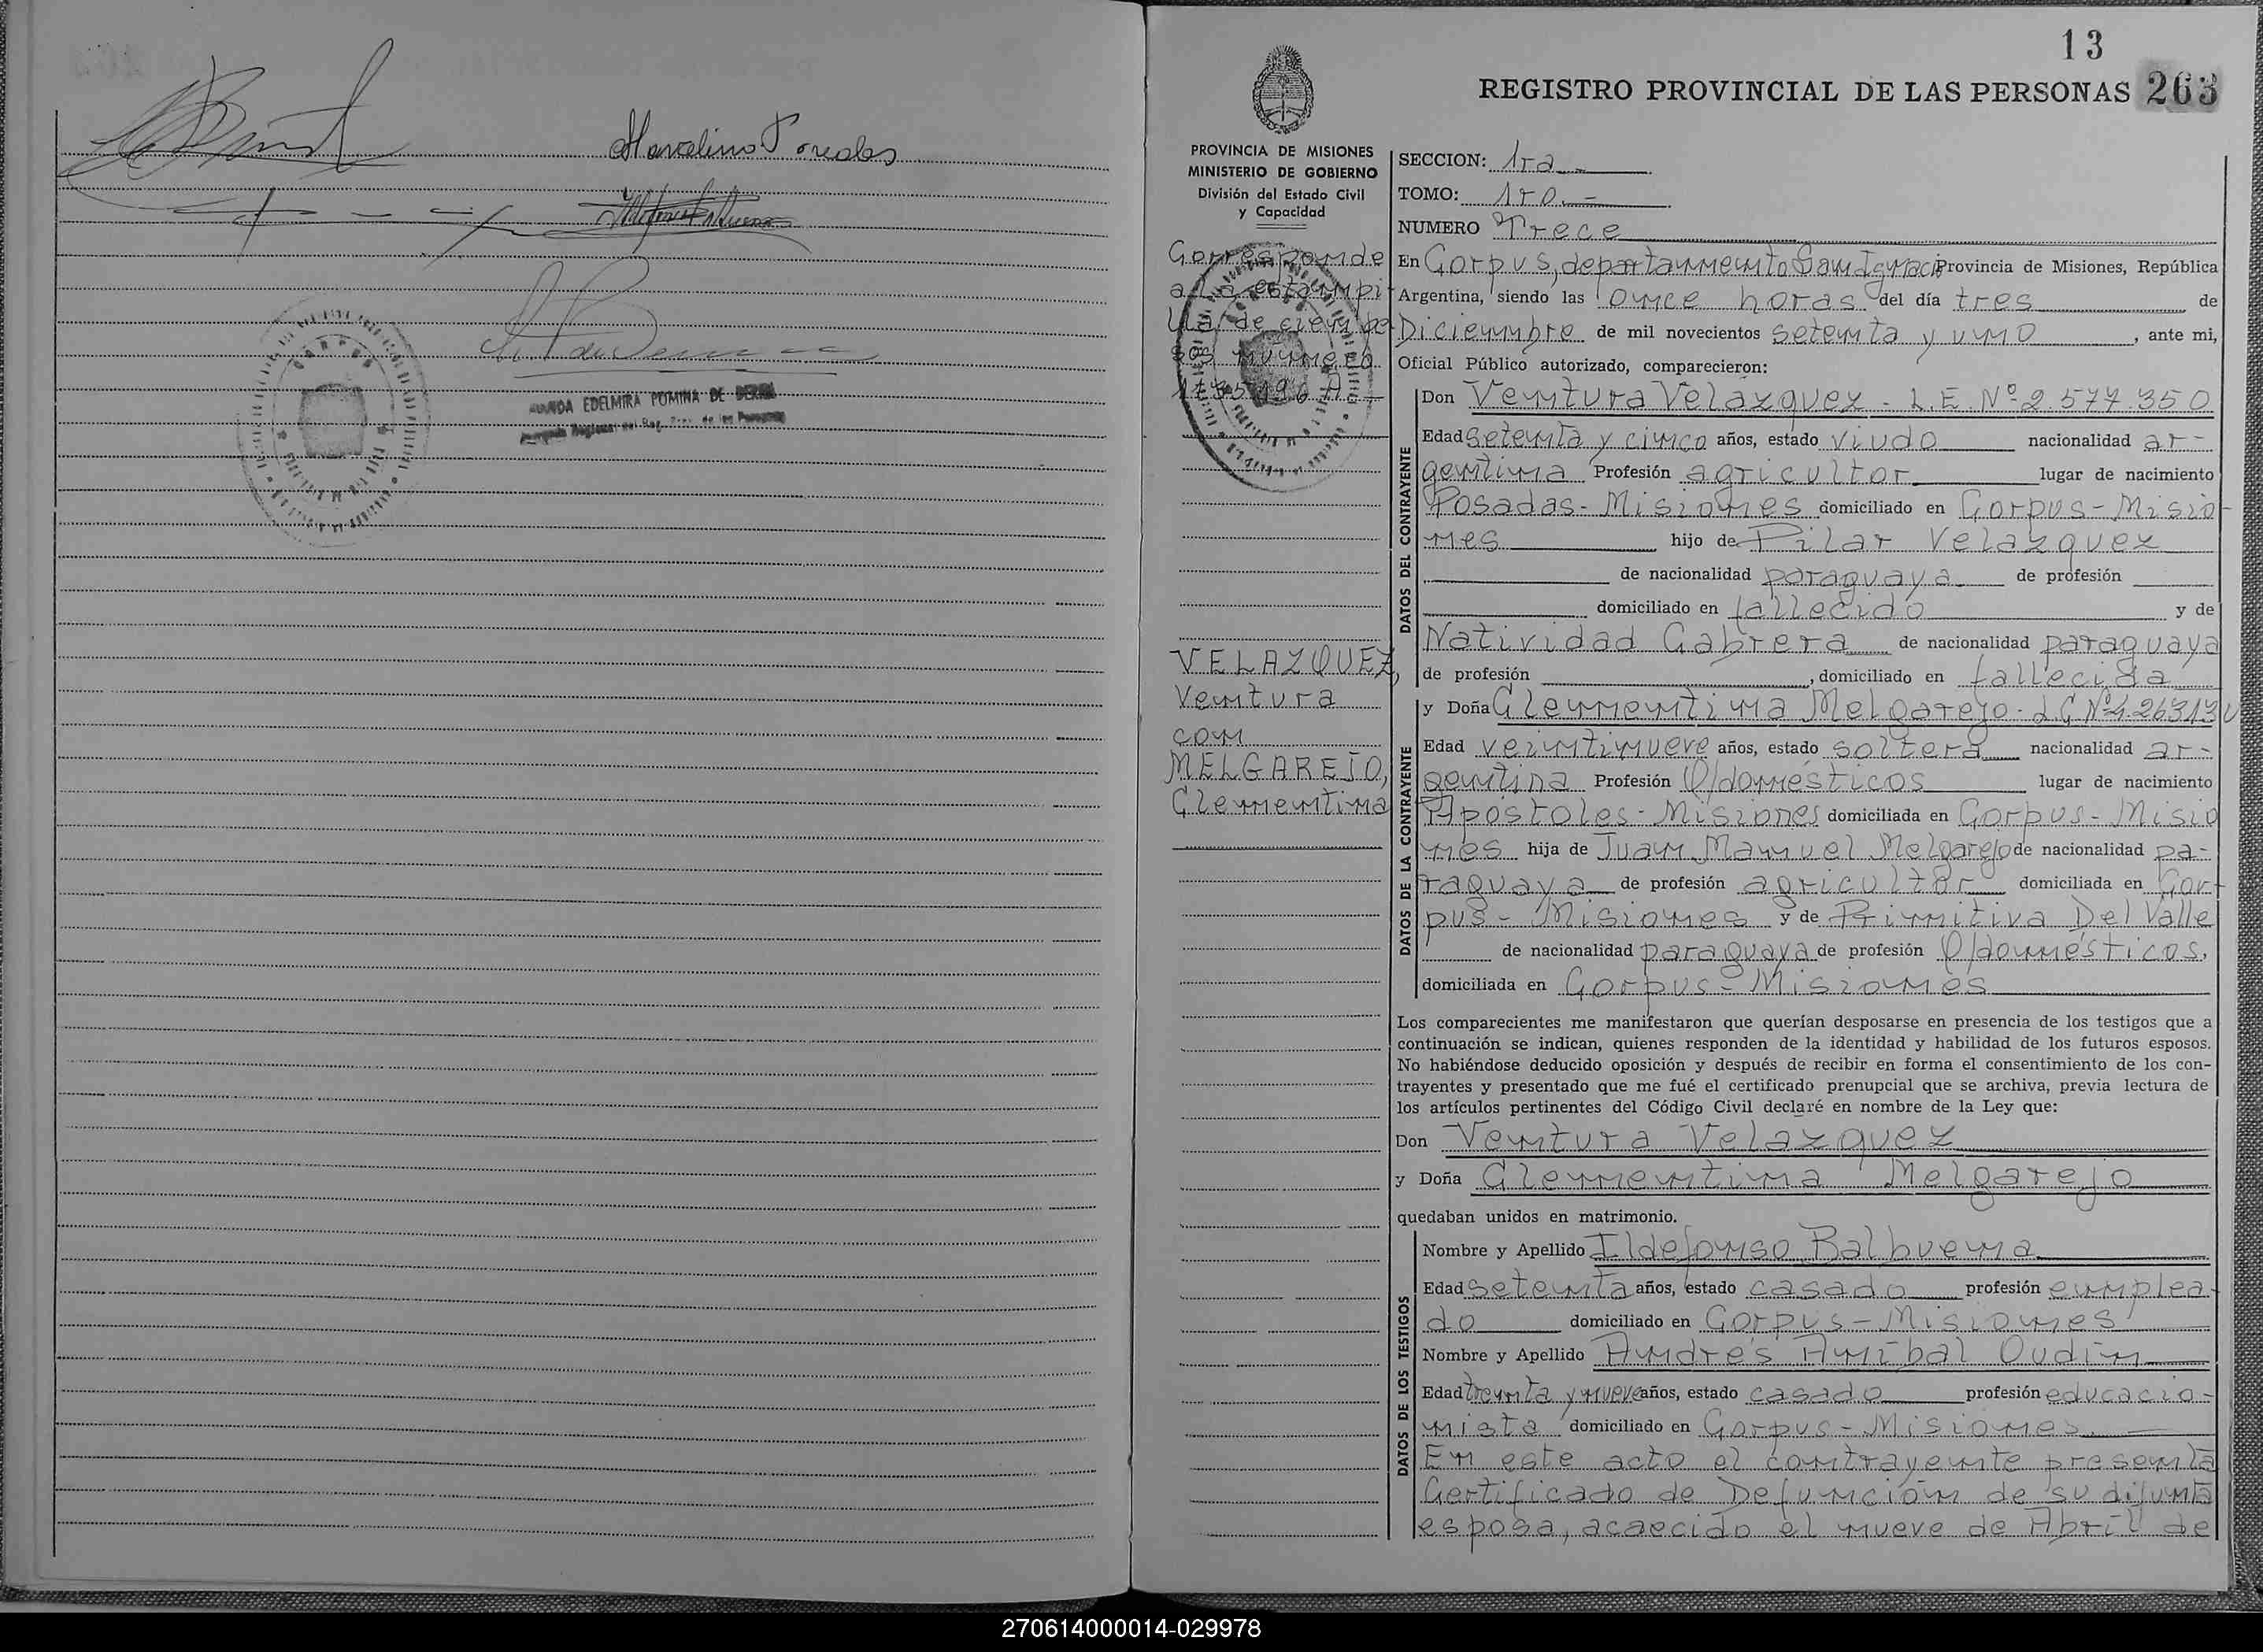 Marcelino
13
REGISTRO PROVINCIAL DE LAS PERSONAS 263
PROVINCIA DE MISIONES
MINISTERIO DE GOBIERNO
División del Estado Civil
y Capacidad
Corresponde
a la estampi-
lla de cien pe-
sos número
VELAZQUEZ,
Ventura
con
MELGAREJO,
Clementina
SECCION: 1ra.-
TOMO: 1ro.-
NUMERO Trece
En Corpus, departamento San Ignacio Provincia de Misiones, República
Argentina, siendo las once horas del día tres de
Diciembre de mil novecientos setenta y uno, ante mi,
Oficial Público autorizado, comparecieron:
DATOS DEL CONTRAYENTE
Don Ventura Velázquez - L.E. Nº 2.577.350
Edad setenta y cinco años, estado viudo nacionalidad ar-
gentina Profesión agricultor lugar de nacimiento
Posadas - Misiones domiciliado en Corpus - Misio-
nes hijo de Pilar Velazquez
de nacionalidad paraguaya de profesión
domiciliado en fallecido y de
Natividad Cabrera de nacionalidad paraguaya
de profesión , domiciliado en fallecida
DATOS DE LA CONTRAYENTE
y Doña Clementina Melgarejo - L.C Nº 4.263.13
Edad veintinueve años, estado soltera nacionalidad ar-
gentina Profesión Q/domésticos lugar de nacimiento
Apóstoles - Misiones domiciliada en Corpus - Misio
nes hija de Juan Manuel Melgarejo de nacionalidad pa-
raguaya de profesión agricultor domiciliada en Cor-
pus - Misiones y de Primitiva Del Valle
de nacionalidad paraguaya de profesión Q/domésticos,
domiciliada en Corpus - Misiones
Los comparecientes me manifestaron que querían desposarse en presencia de los testigos que a
continuación se indican, quienes responden de la identidad y habilidad de los futuros esposos.
No habiéndose deducido oposición y después de recibir en forma el consentimiento de los con-
trayentes y presentado que me fué el certificado prenupcial que se archiva, previa lectura de
los artículos pertinentes del Código Civil declaré en nombre de la Ley que:
Don Ventura Velazquez
y Doña Clementina Melgarejo
quedaban unidos en matrimonio.
DATOS DE LOS TESTIGOS
Nombre y Apellido Ildefonso Balbuena
Edad setenta años, estado casado profesión emplea-
do domiciliado en Corpus - Misiones
Nombre y Apellido Andrés Aníbal Oudin
Edad treinta y nueve años, estado casado profesión educacio-
nista domiciliado en Corpus - Misiones.
En este acto el contrayente presenta
Certificado de Defunción de su difunta
esposa, acaecido el nueve de Abril de
270614000014-029978